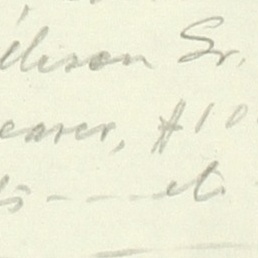 ilson Sr.
earer, $10
ts - - - - et